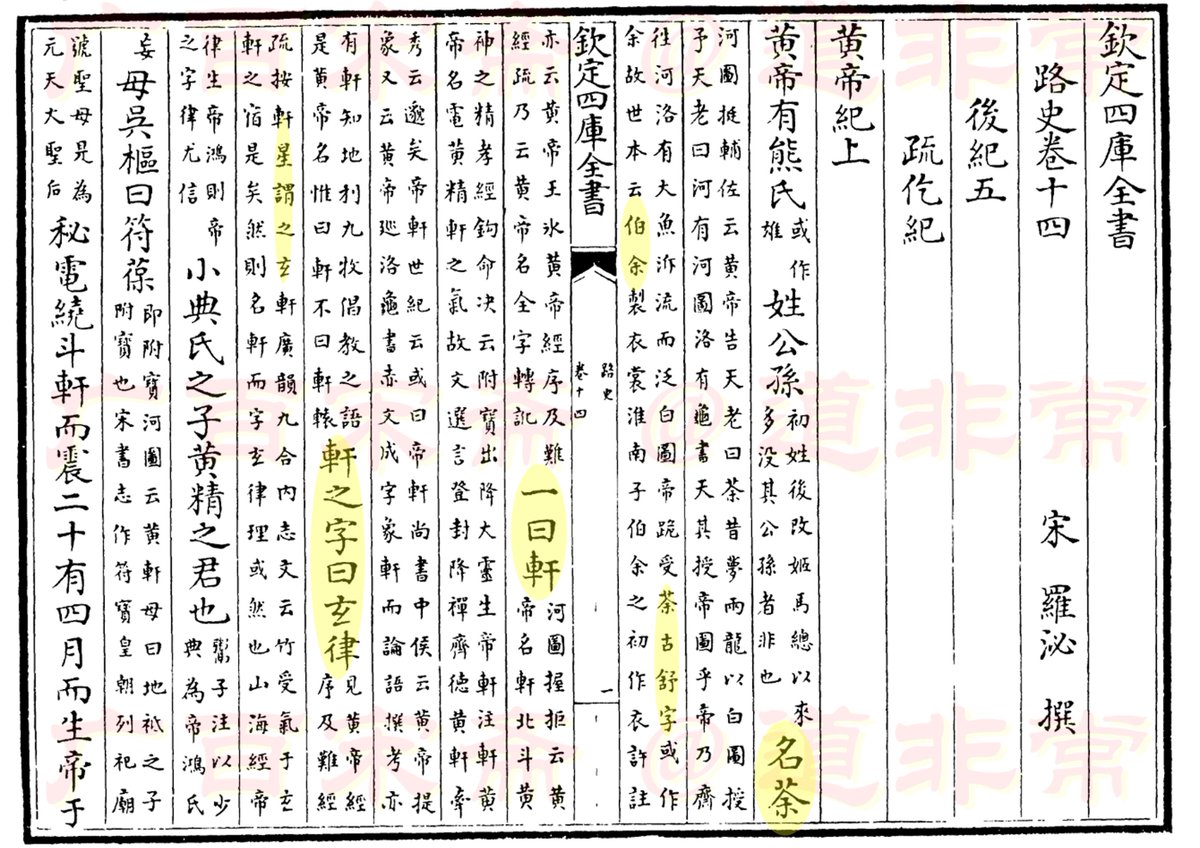 欽定四庫全書
路史卷十四 宋 羅泌 撰
後紀五
疏仡紀
黄帝紀上
黄帝有熊氏或作雄姓公孫初姓後改姬馬總以來多没其公孫者非也名荼
河圖挺輔佐云黄帝告天老曰荼昔夢兩龍以白圖授
予天老曰河有河圖洛有龜書天其授帝圖乎帝乃齊
徃河洛有大魚泝流而泛白圖帝跪受荼古舒字或作
余故世本云伯余製衣裳淮南子伯余之初作衣許註
欽定四庫全書
路史
卷十四
一
亦云黄帝王氷黄帝經序及難經疏乃云黄帝名全字轉訛一曰軒河圖握拒云黄帝名軒北斗黄
神之精孝經鉤命决云附寳出降大靈生帝軒注軒黄
帝名電黄精軒之氣故文選言登封降禪齊德黄軒帝
秀云邈矣帝軒世紀云或曰帝軒尚書中侯云黄帝提
象又云黄帝廵洛龜書赤文成字象軒而論語撰考亦
有軒知地利九牧倡教之語是黄帝名惟曰軒不曰軒轅軒之字曰玄律見黄帝經序及難經
疏按軒星謂之玄軒廣韻九合内志文云竹受氣于玄
軒之宿是矣然則名軒而字玄律理或然也山海經帝
律生帝鴻則帝之字律尤信小典氏之子黄精之君也鬻子注以少典為帝鴻氏
妄母吳樞曰符葆即附寳河圖云黄軒母曰地祇之子附寳也宋書志作符寳皇朝列祀廟
號聖母是為元天大聖后秘電繞斗軒而震二十有四月而生帝于
六百家斋 @道非常
六百家斋 @道非常
六百家斋 @道非常